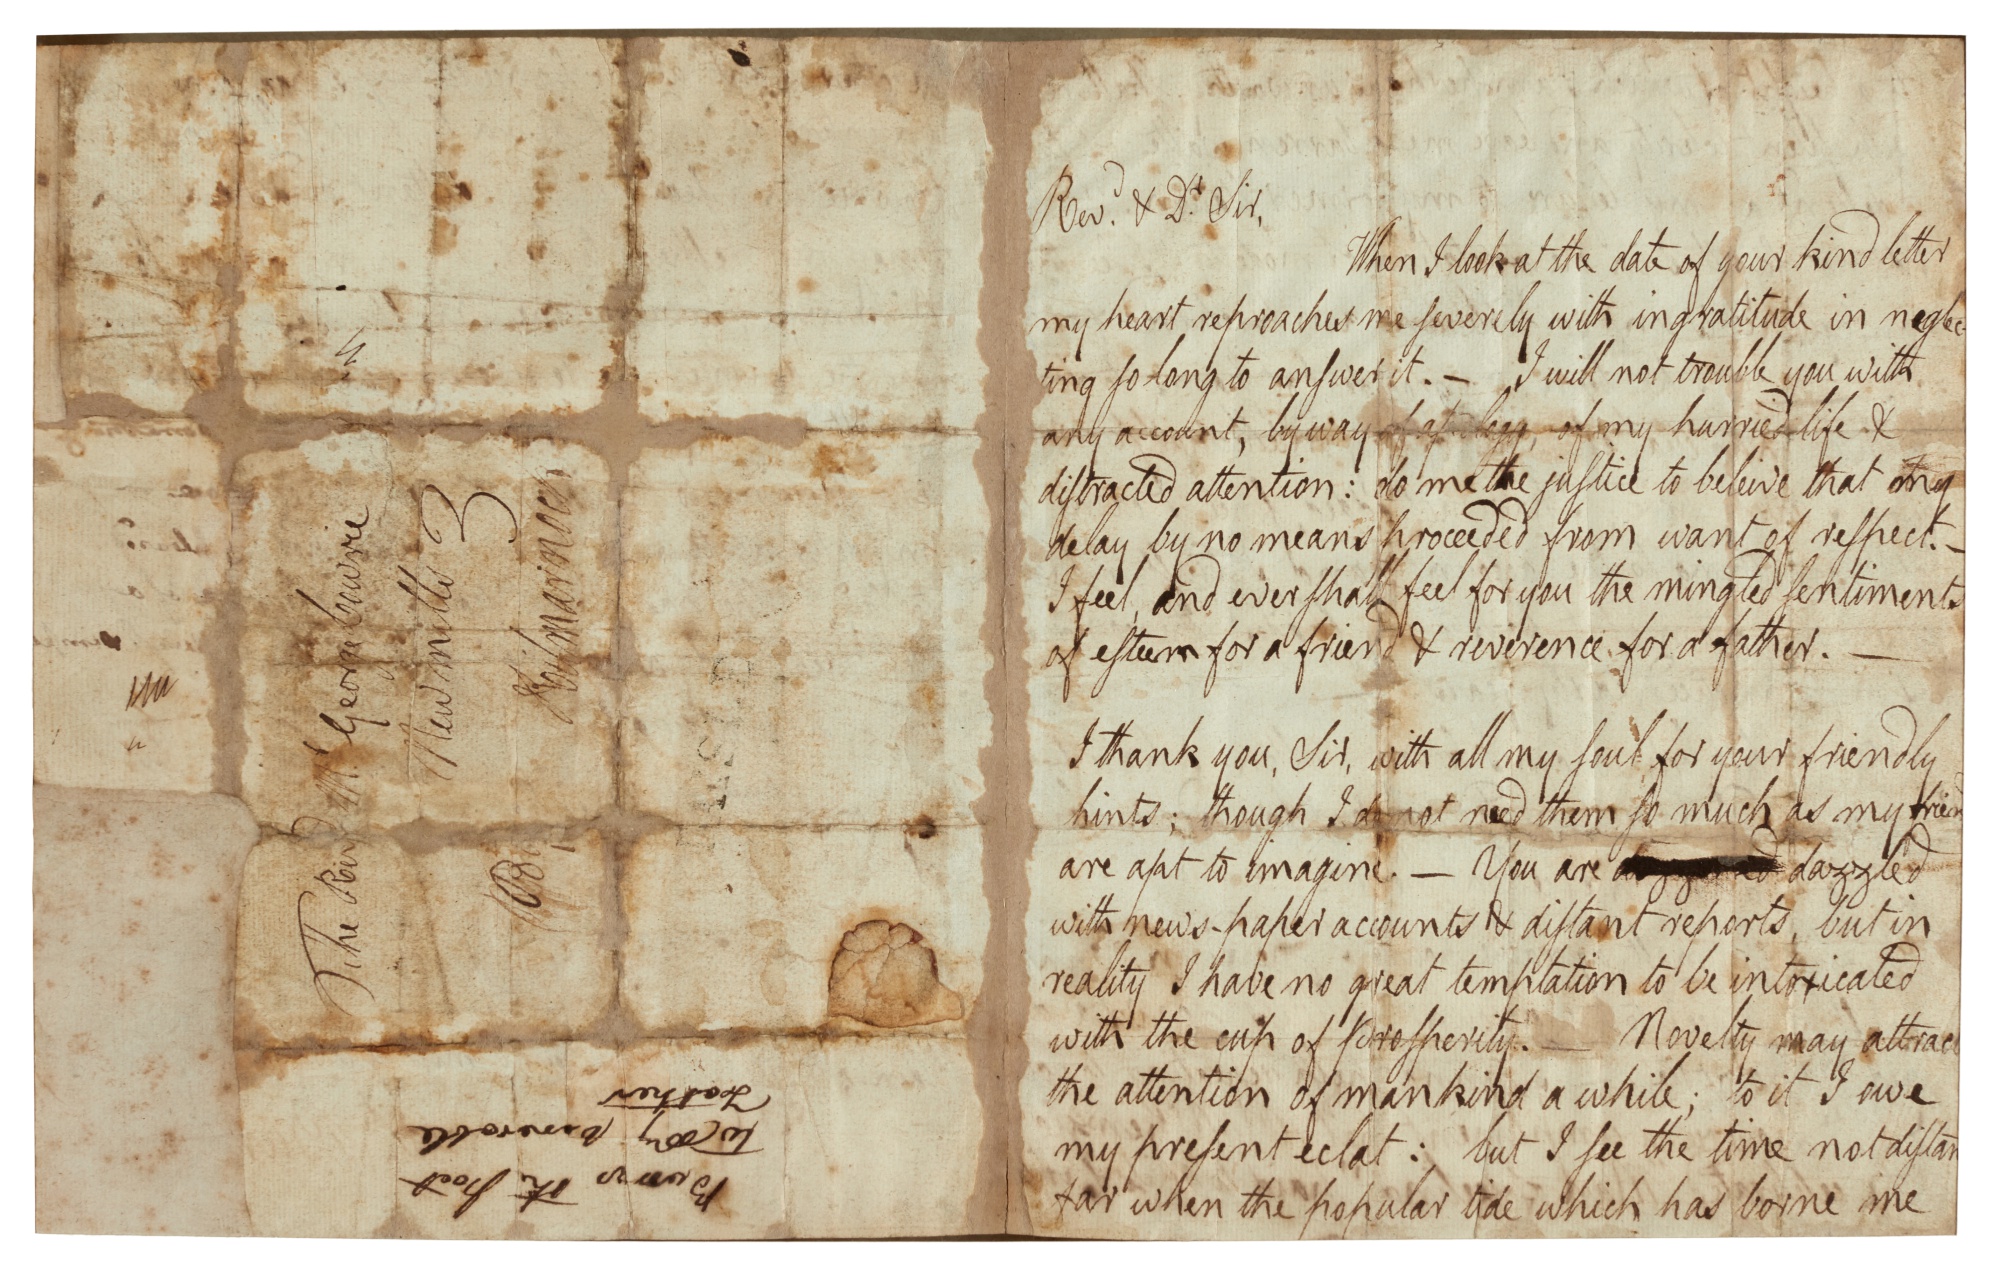 The Revd. Mr. George Lawrie
Newmills
3
Kilmarnock
Burns the Poet
to my venerable
Father
Revd. & Dr. Sir,
When I look at the date of your kind letter
my heart reproaches me severely with ingratitude in neglec-
ting so long to answer it. — I will not trouble you with
any account, by way of apology, of my hurried life &
distracted attention: do me the justice to beleive that my
delay by no means proceeded from want of respect. —
I feel, and ever shall feel for you the mingled sentiments
of esteem for a friend & reverence for a father. —
I thank you, Sir, with all my soul for your friendly
hints; though I do not need them so much as my friends
are apt to imagine. — You are dazzled
with news-paper accounts & distant reports, but in
reality I have no great temptation to be intoxicated
with the cup of Prosperity. — Novelty may attract
the attention of mankind a while; to it I owe
my present eclat: but I see the time not distant
far when the popular tide which has borne me